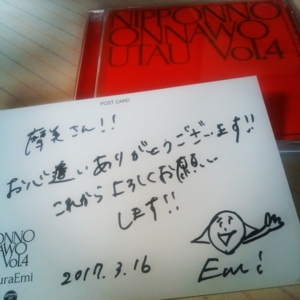 NIPPONNO
ONNAWO
UTAU Vol.4
POST CARD
摩美さん!!
お心遣いありがとうございます!!
これからよろしくお願い
します!!
2017.3.16
Emi
ONNO
WO
Vol.4
uraEmi